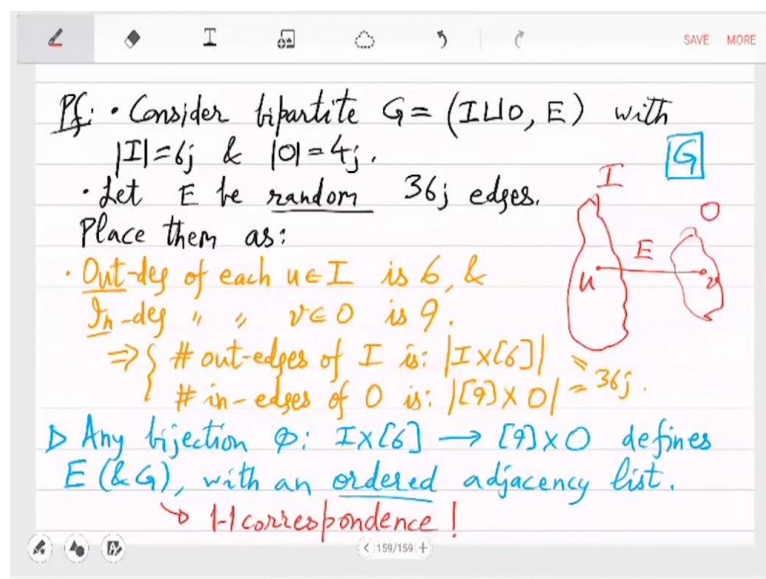 SAVE MORE
Pf: • Consider bipartite G = (I⊔O, E) with
|I|=6j & |O|=4j.
G
• Let E be random 36j edges.
I
Place them as:
O
• Out-deg of each u∈I is 6, &
E
u
v
In-deg " " v∈O is 9.
⇒ { # out-edges of I is: |I×[6]|
# in-edges of O is: |[9]×O| = = 36j.
▷ Any bijection φ: I×[6] → [9]×O defines
E (& G), with an ordered adjacency list.
↳ 1-1 correspondence !
< 159/159 +